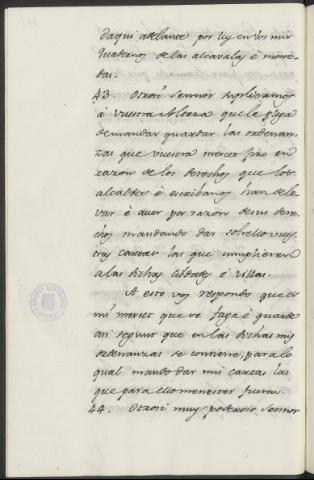 daqui adelante por ley en los mis
quadernos de las alcavalas è mone-
das.
43. Otrosi Sennor suplicamos
à vuestra Alteza que le plega
demandar guardar las ordenan-
zas que vuestra merced fizo en
razòn de los derechos que los
alcaldes è escribanos han de le
var è aver por razòn de sus dere-
chos mandando dar sobrello vues-
tras cartas las que cumplieren
à las dichas Cibdades è villas.
A esto vos respondo que es
mi merced que se faga è guarde
asi segunt que en las dichas mis
ordenanzas se contiene, para lo
qual mando dar mis cartas las
que para ello menester fueren.
44. Otrosi muy poderoso Sennor